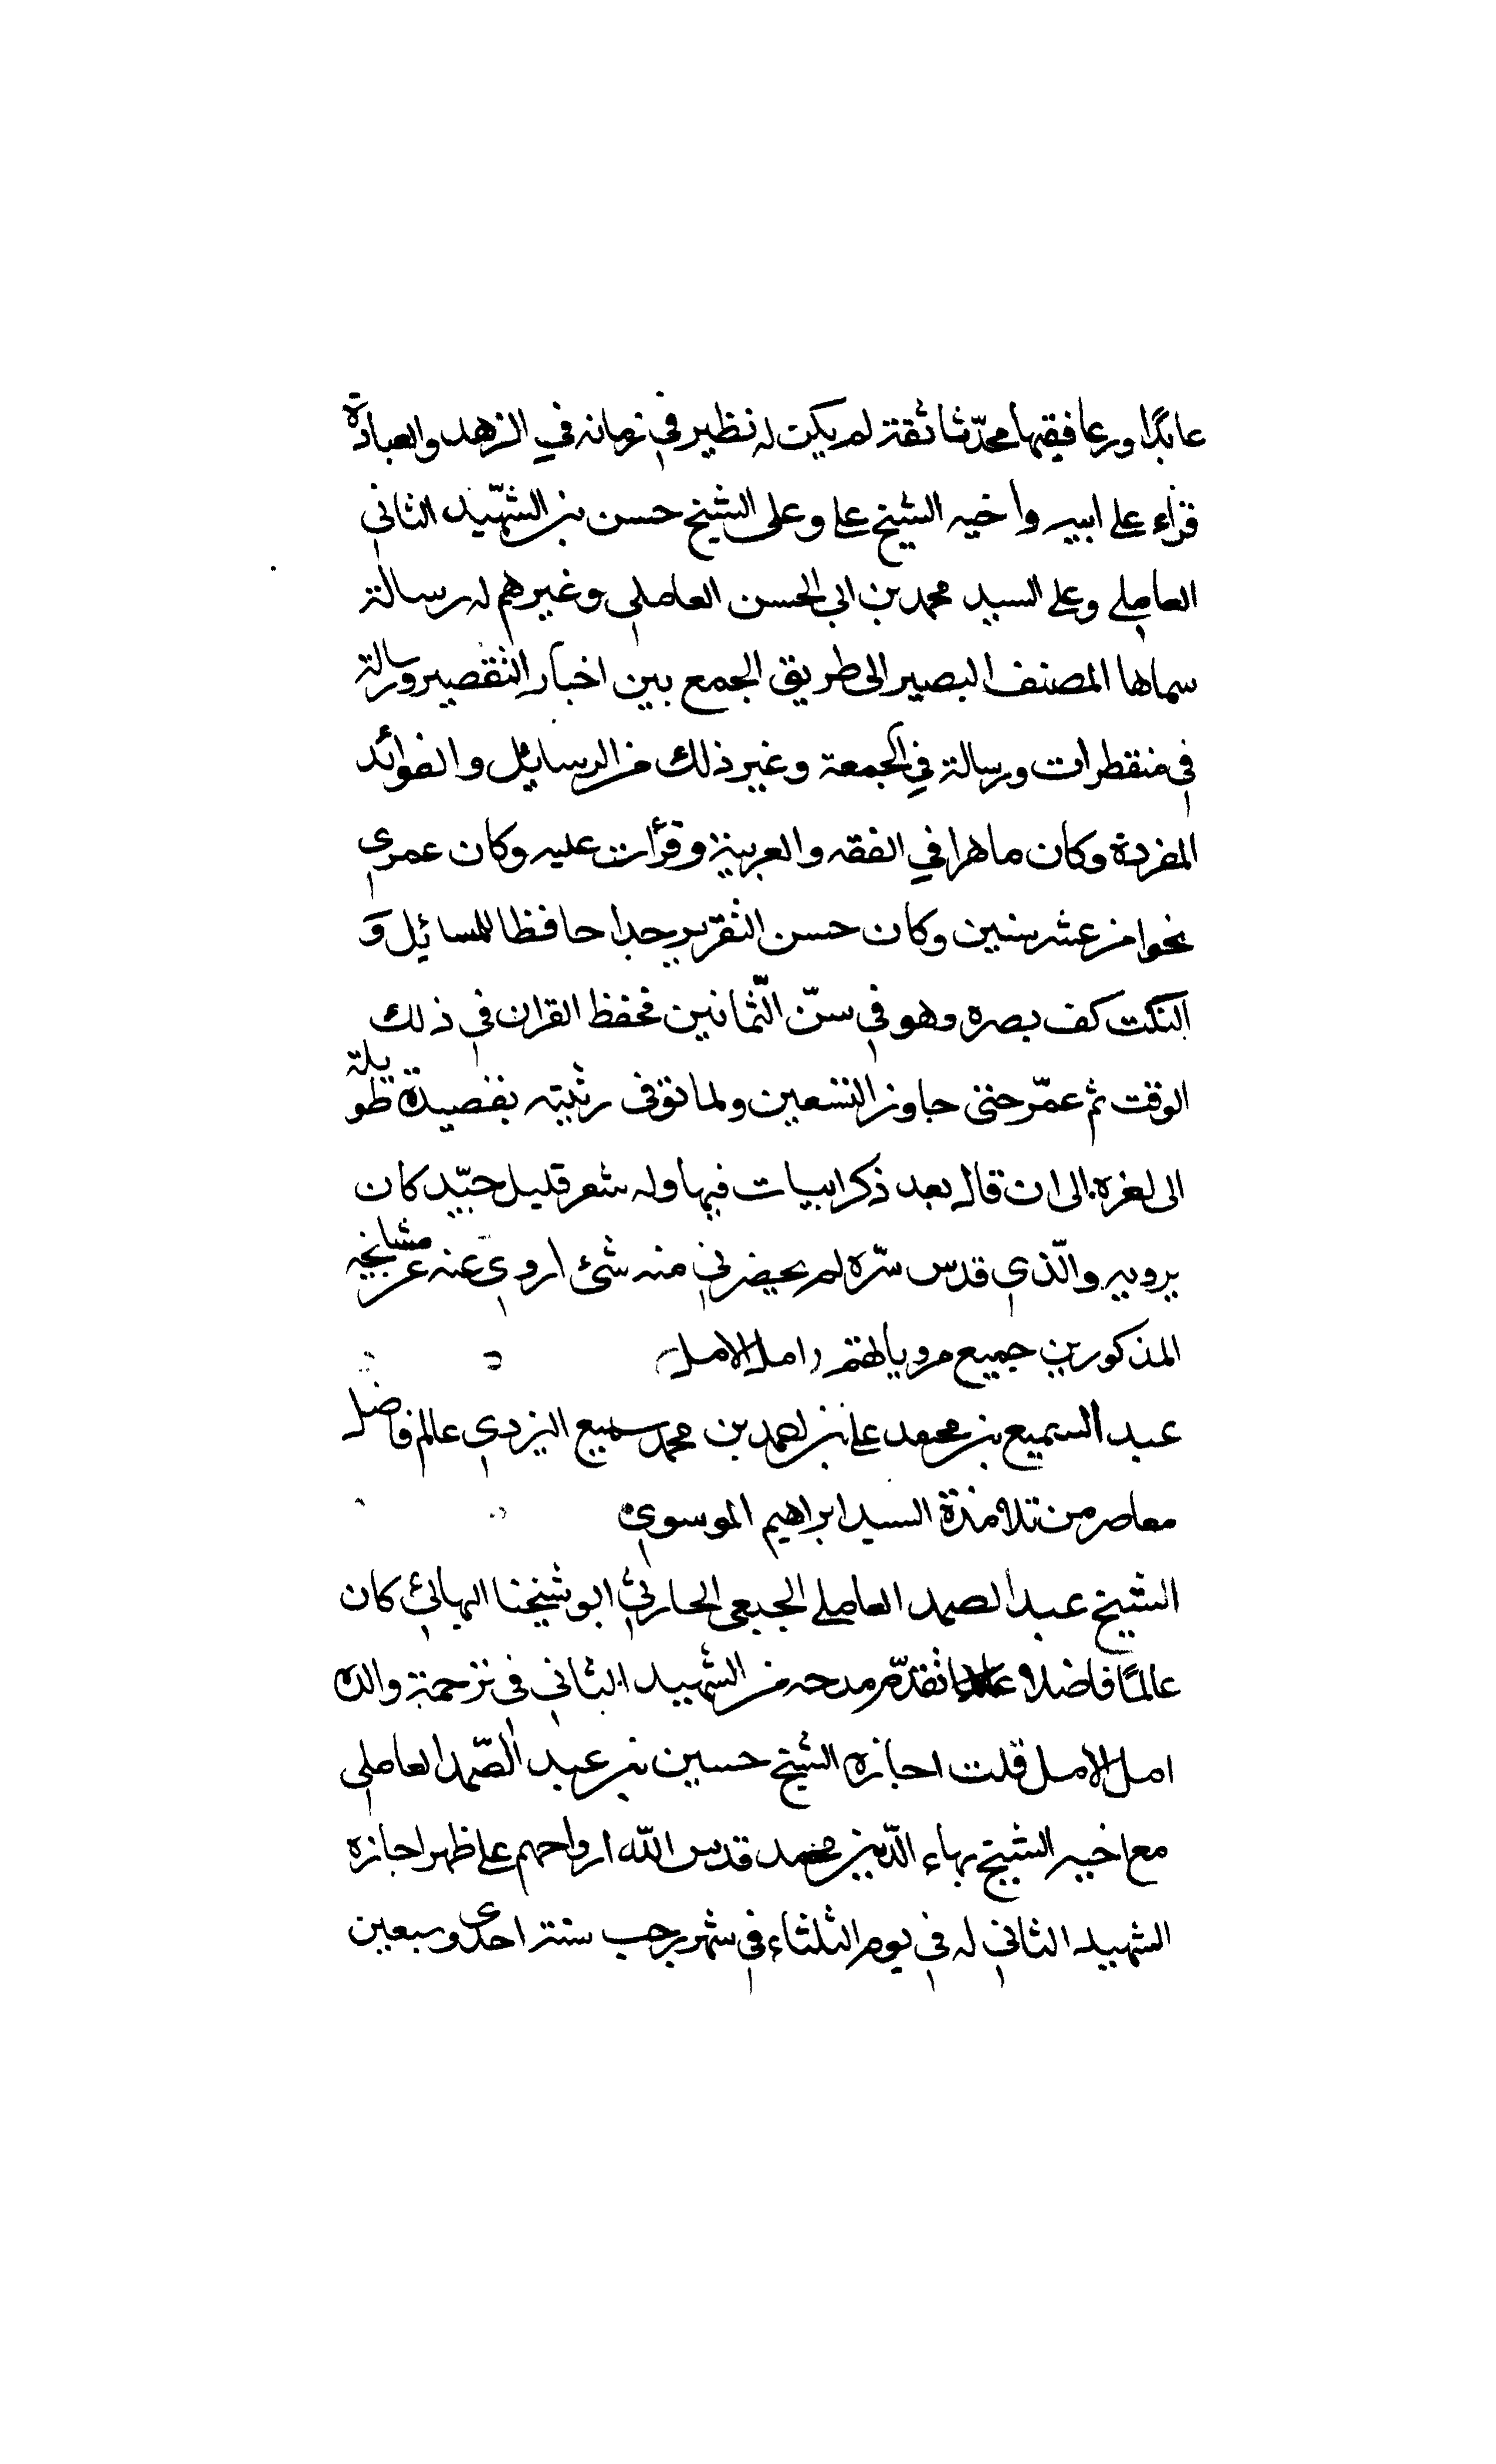 عابدًا ورعا فقيها محدّثا ثقة لم يكن له نظير في زمانه في الزهد والعبادة
قراء على ابيه واخيه الشيخ على وعلى الشيخ حسن بن الشهّيد الثاني
العاملي وعلى السيد محمد بن ابى الحسن العاملي وغيرهم له رسالة
سماها المصنف البصير الى طريق الجمع بين اخبار التقصير ورسالة
في منقطرات ورسالة في الجمعة وغير ذلك من الرسايل والفوائد
المفردة وكان ماهرا في الفقه والعربية وقرأت عليه وكان عمرى
نحوا من عشر سنين وكان حسن التقرير جدا حافظا للمسائل و
النكت كف بصره وهو في سنّ الثّمانين فحفظ القران في ذلك
الوقت ثم عمّر حتى جاوز التسعين ولما توفى رثيته بقصيدة طويلة
الى اخره الى ان قال بعد ذكر ابيات فيها وله شعر قليل جيّد كان
يرويه والّذي قدس سّره لم يحضرني منه شئ اروي عنه عن مشايخه
المذكورين جميع مروياتهم امل الامل
عبد السميع بن محمد على بن احمد بن محمد سميع اليزدي عالم فاضل
معاصر من تلامذة السيد ابراهيم الموسوي
الشيخ عبد الصمد العاملي الجبعى الحارثي ابو شيخنا البهائي كان
عالمًا فاضلا تقدّم مدحه من الشهيد الثاني في ترجمة والده
امل الامل قلت اجازه الشيخ حسين بن عبد الصّمد العاملي
مع اخيه الشيخ بهاء الدّين محمد قدس الله ارواحهم على ظهر اجازه
الشهيد الثاني له في يوم الثلثاء في شهر رجب سنة احدى وسبعين